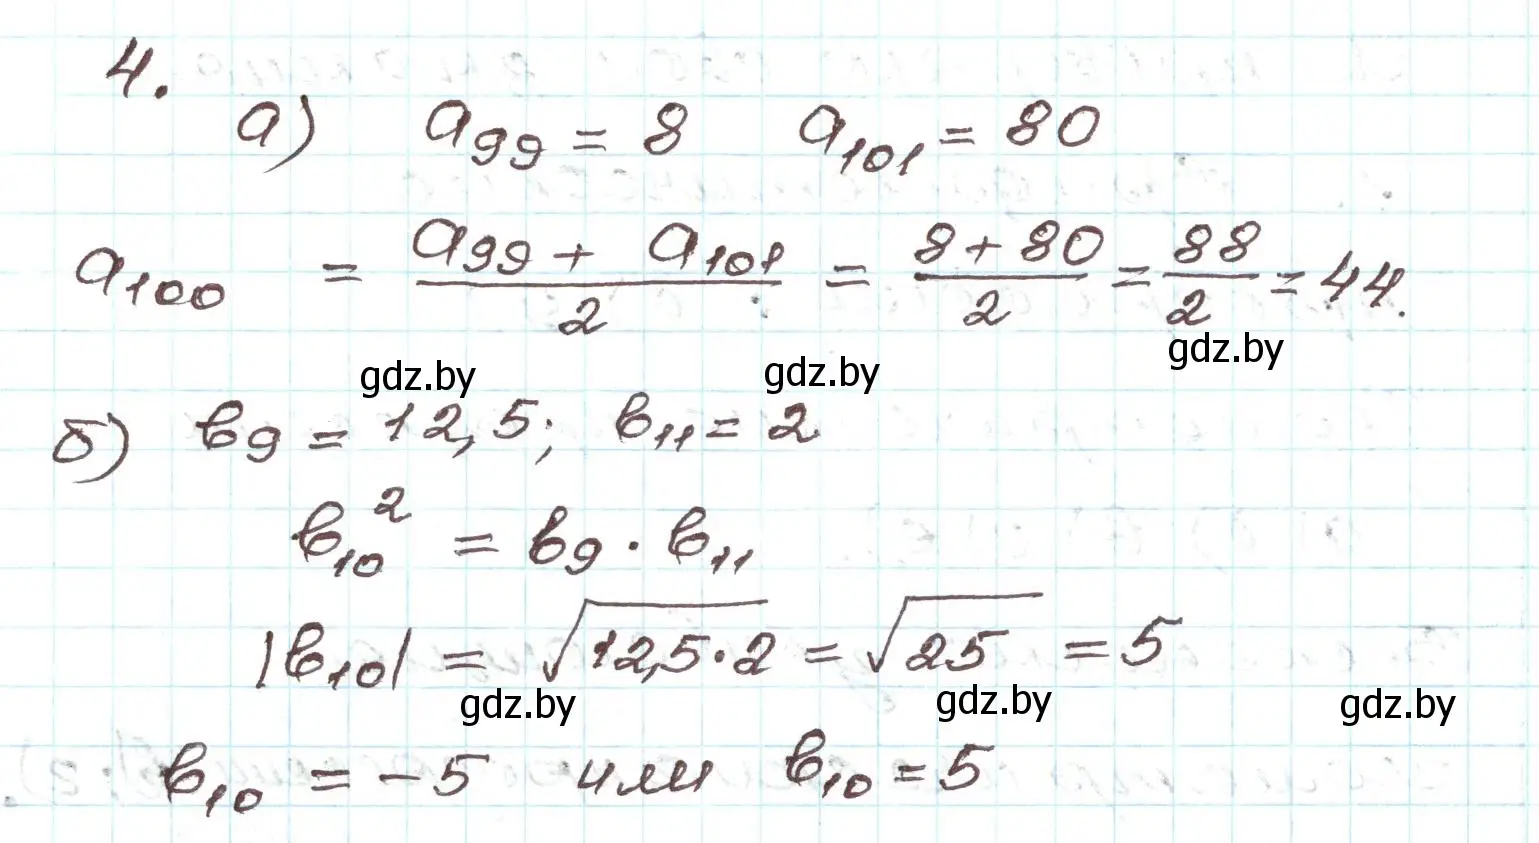 4.
а) a₉₉ = 8 a₁₀₁ = 80
a₁₀₀ = (a₉₉ + a₁₀₁)/2 = (8 + 80)/2 = 88/2 = 44.
gdz.by gdz.by gdz.by
б) b₉ = 12,5; b₁₁ = 2
b₁₀² = b₉ · b₁₁
|b₁₀| = √(12,5·2) = √25 = 5
gdz.by gdz.by gdz.by
b₁₀ = -5 или b₁₀ = 5